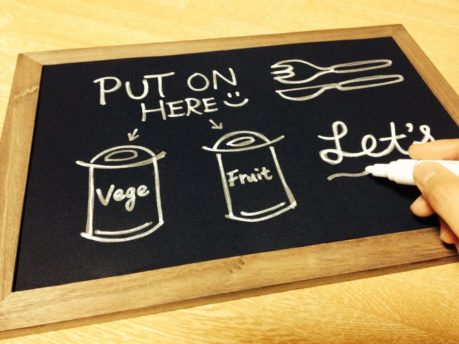 PUT ON
HERE
Vege
Fruit
Let's